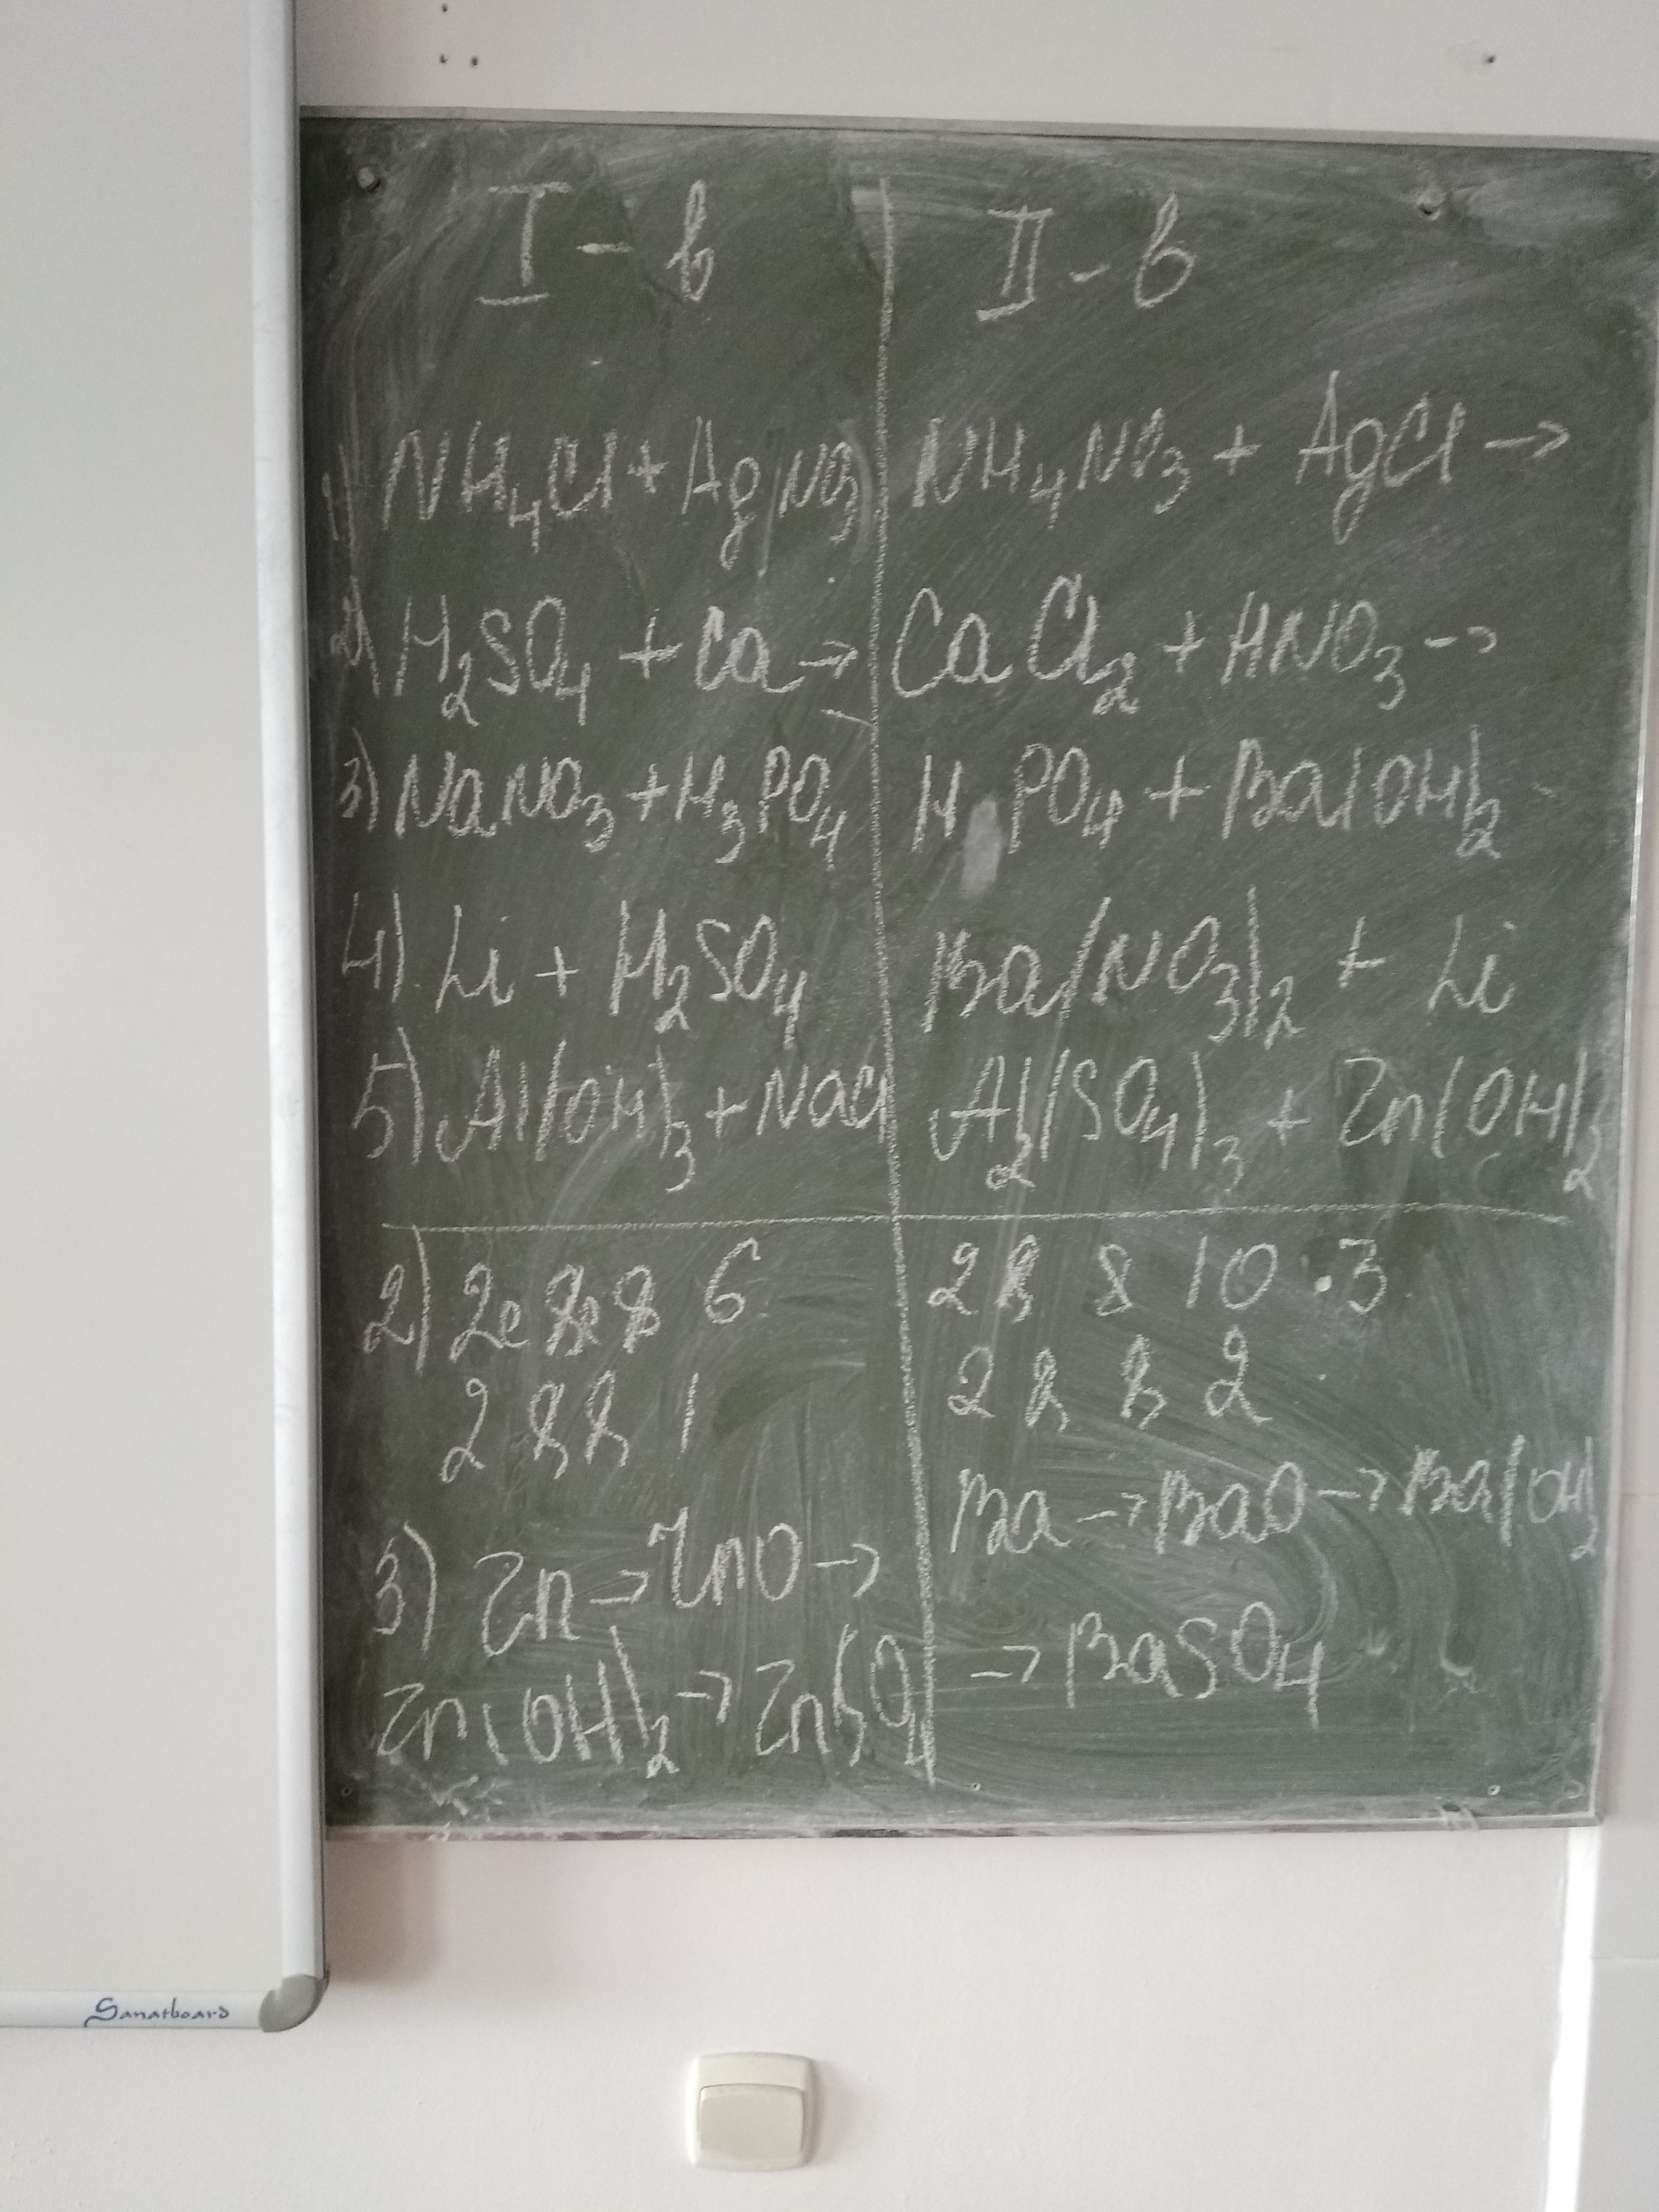 I - в
1) NH₄Cl + AgNO₃
2) H₂SO₄ + Ca →
3) NaNO₃ + H₃PO₄
4) Li + H₂SO₄
5) Al(OH)₃ + NaCl
2) 2e 8e 8 6
2 8 8 1
3) Zn → ZnO →
Zn(OH)₂ → ZnSO₄
II - в
NH₄NO₃ + AgCl →
CaCl₂ + HNO₃ →
H PO₄ + Ba(OH)₂
Ba(NO₃)₂ + Li
Al₂(SO₄)₃ + Zn(OH)₂
2 8 8 10 . 3
2 8 8 2
Ba → BaO → Ba(OH)₂
→ BaSO₄
Sanatboard